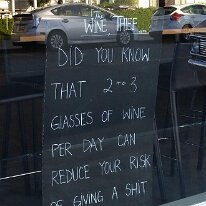 The
WINE TREE
DID YOU KNOW
THAT 2 TO 3
GLASSES OF WINE
PER DAY CAN
REDUCE YOUR RISK
OF GIVING A SHIT